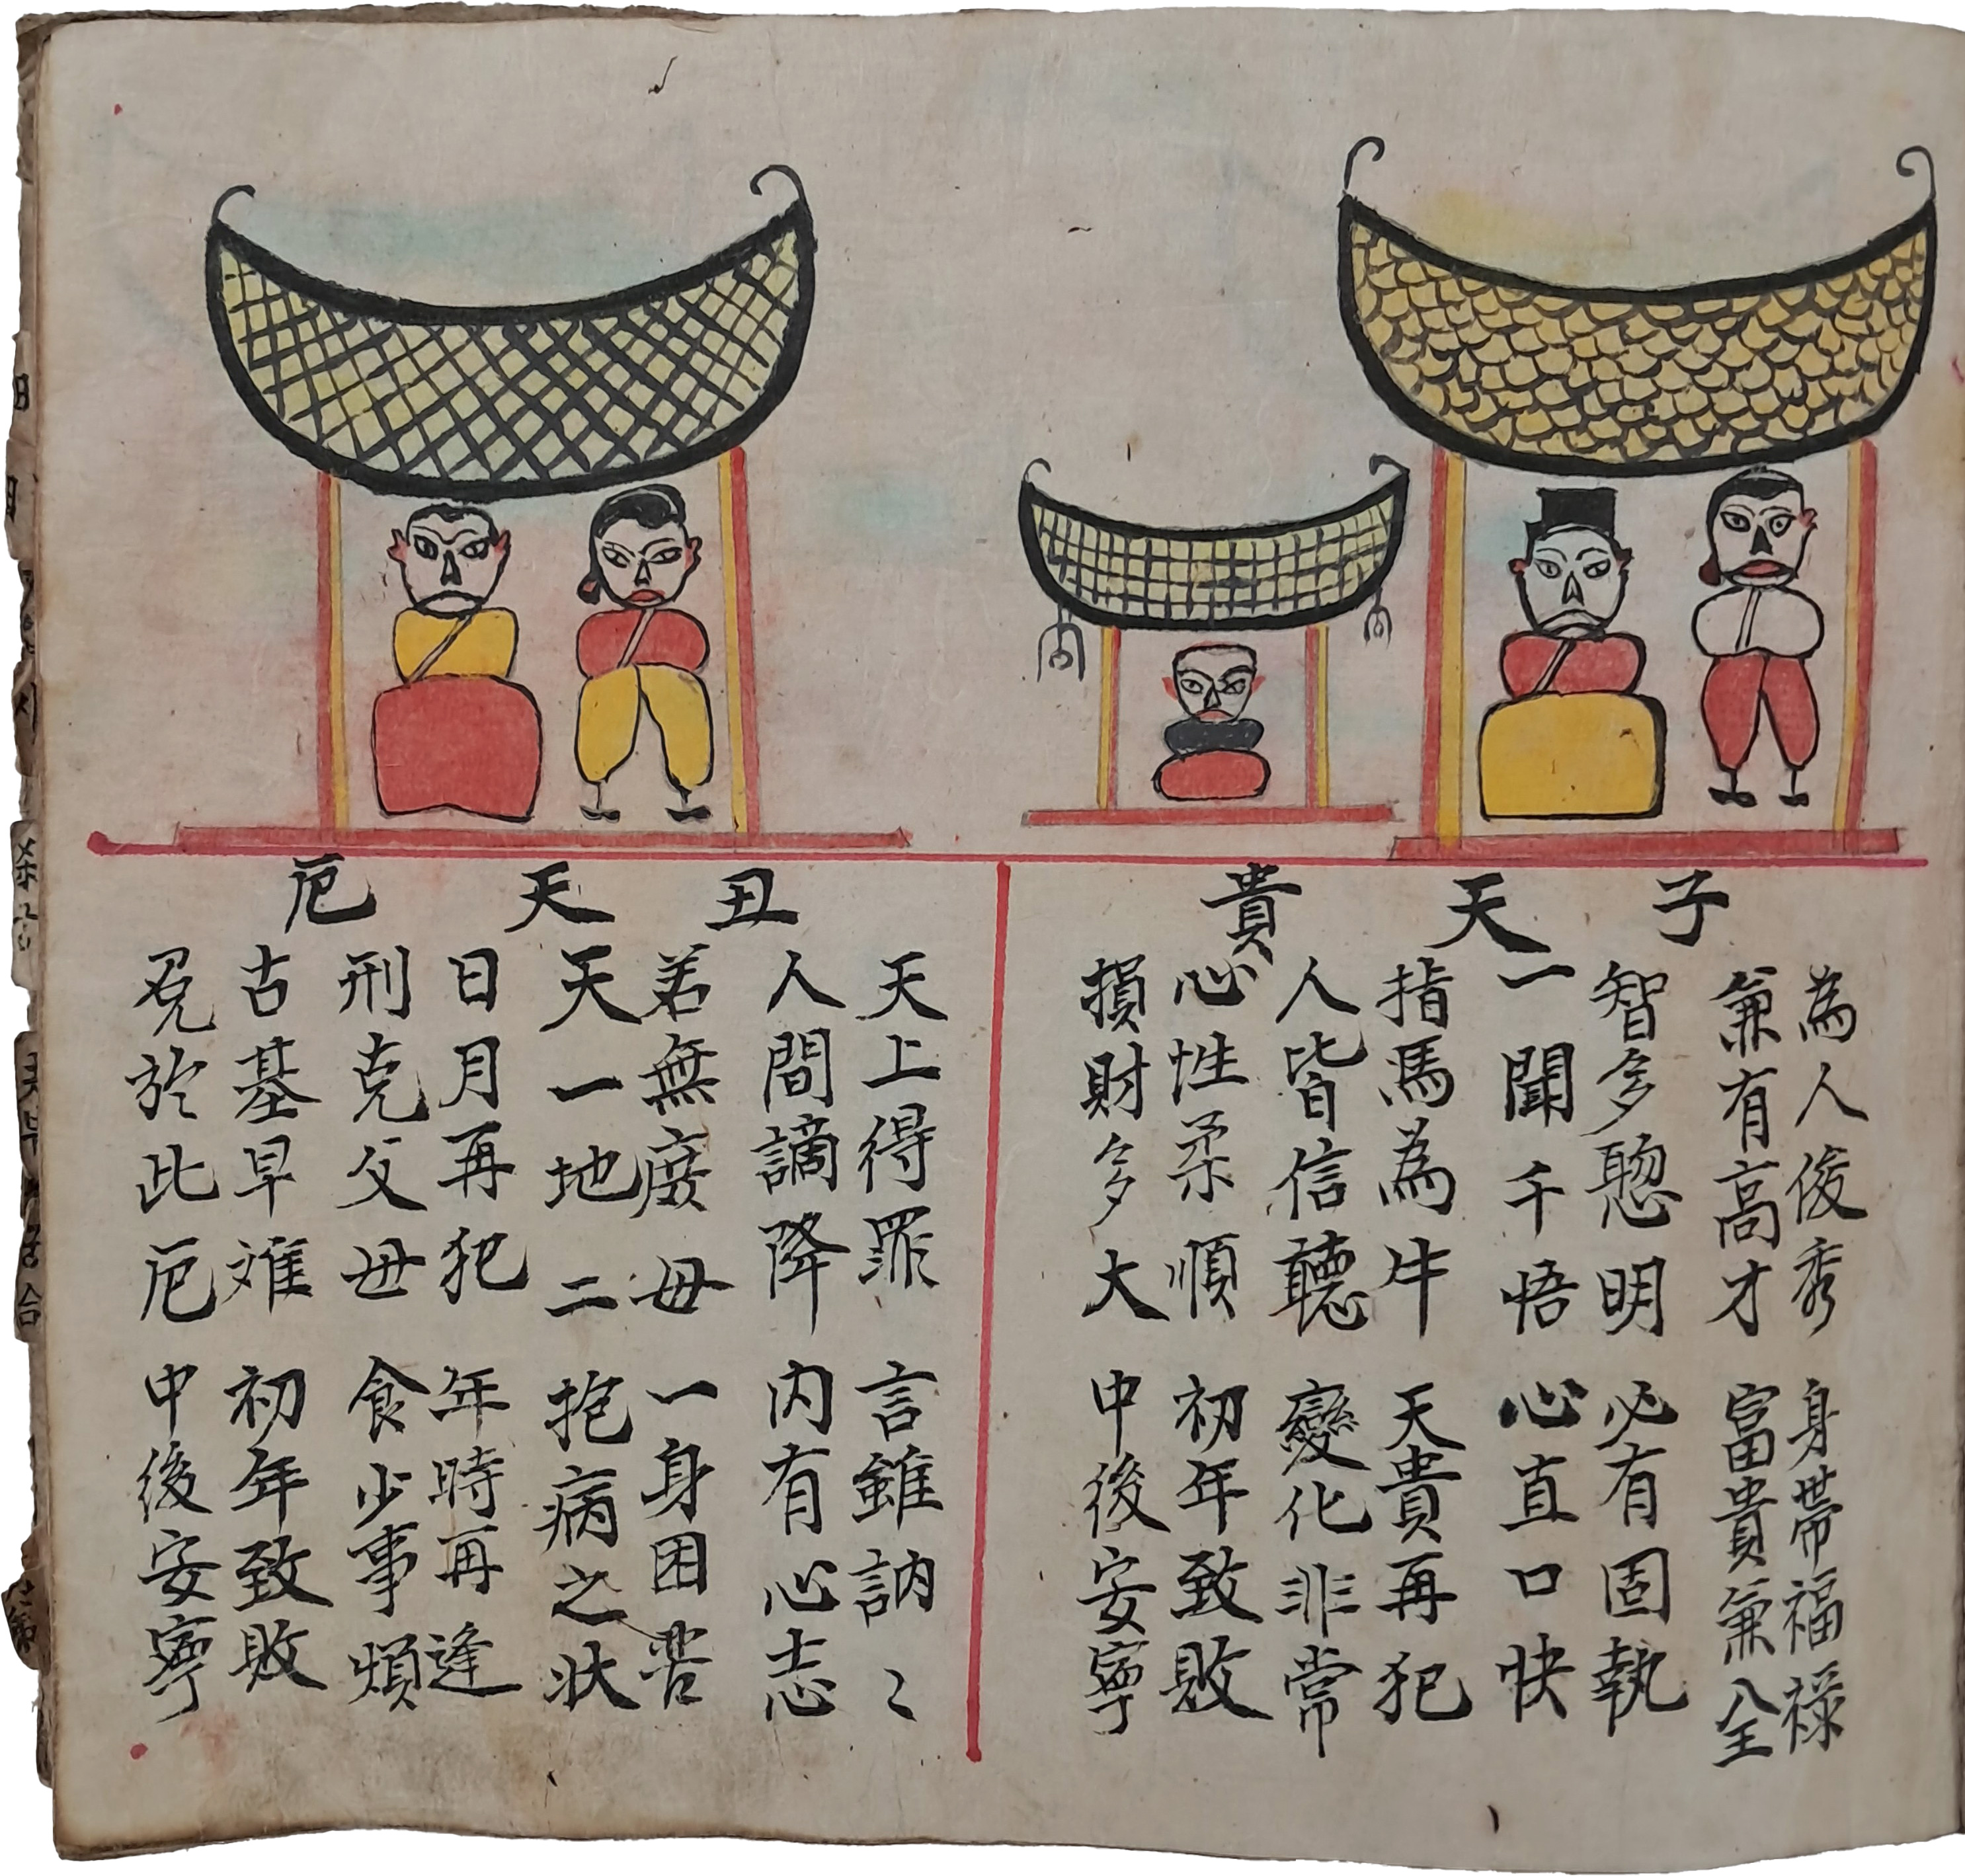 子天貴
為人俊秀 身帶福祿
兼有高才 富貴兼全
智多聦明 必有固執
一聞千悟 心直口快
指馬為牛 天貴再犯
人皆信聽 變化非常
心性柔順 初年致敗
損財多大 中後安寧
丑天厄
天上得罪 言雖訥〻
人間謫降 内有心志
若無庶母 一身困苦
天一地二 抱病之状
日月再犯 年時再逢
刑克父母 食少事煩
古基早难 初年致敗
免於此厄 中後安寧